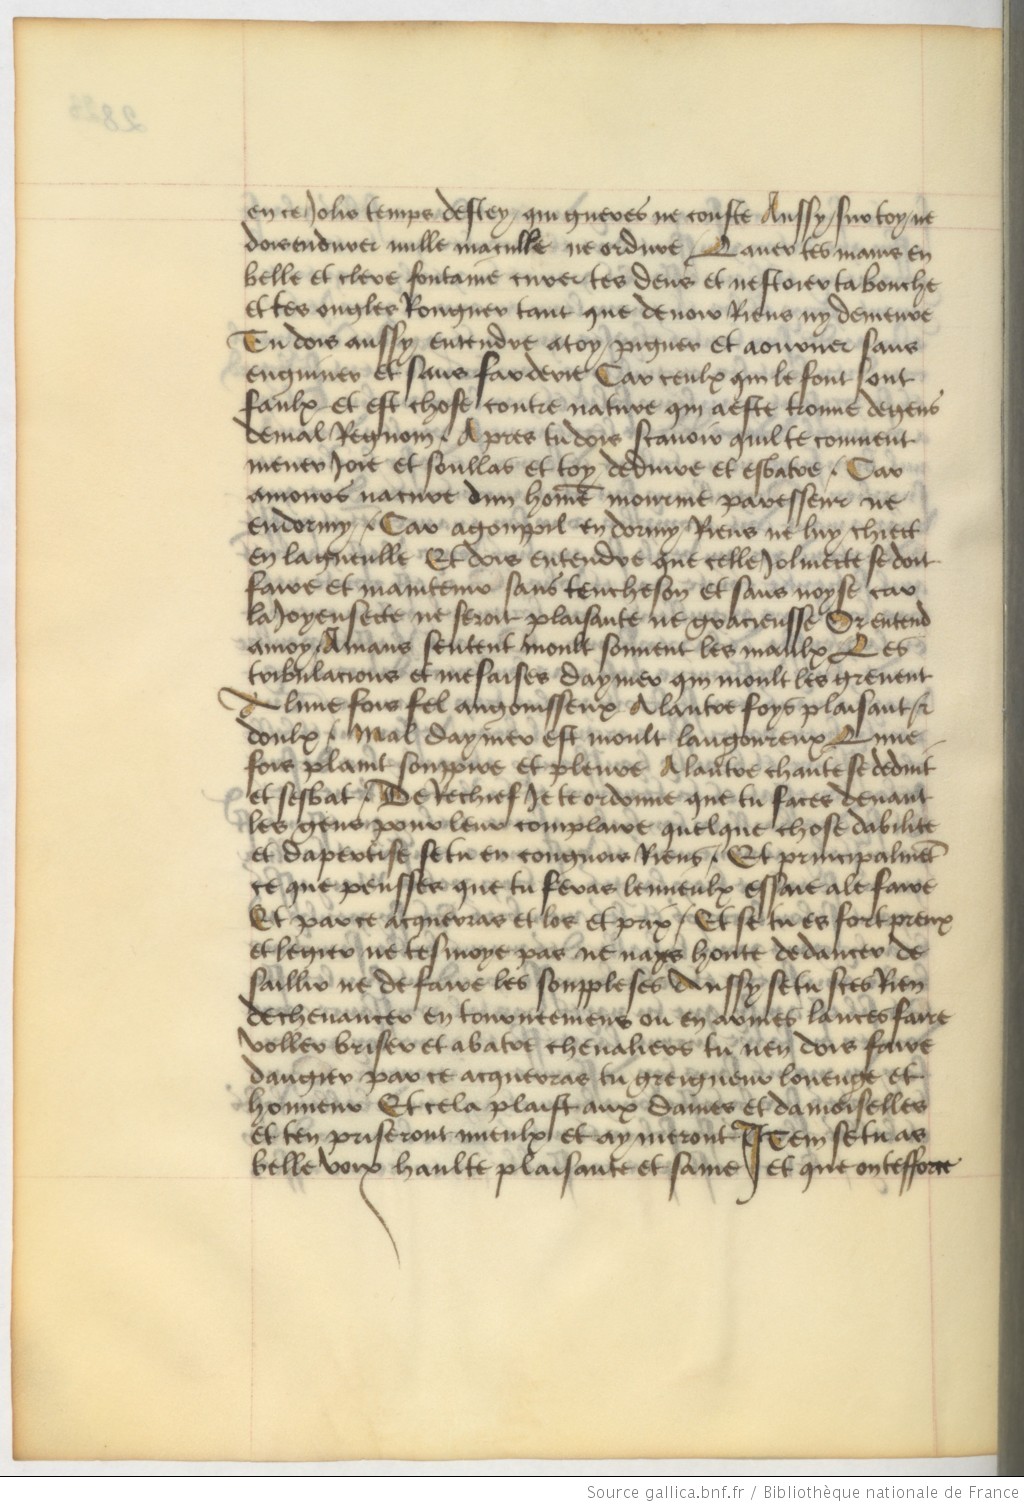 en ce Joliv temps destey / qui gueres ne couste Aussy / sur toy / ne
dois endurer nulle maculle ne ordure / Laver tes mains en
belle et clere fontaine curer tes dens et nestoier ta bouche
et tes ongles Rongner tant que de noir Riens ny demeure
Tu dois aussy entendre a toy pigner et aourner sans
enguiner et sans farderie Car ceulx qui le font sont
faulx et est chose contre nature qui a este trouue de gens
de mal Regnom / Apres tu dois scauoir quil te conuient
mener Joie et soullas et toy deduire et esbatre / Car
amours na cure dun home mourme paresseux ne
endormy / Car a gouppil endormy Riens ne luy chiect
en la gueulle Et dois entendre que celle Joliuecte se doit
faire et maintenir sans tencheson et sans noyse car
la Joyeusecte ne seroit plaisante ne gracieusse Or entend
a moy Amans sentent moult souuent les maulx Les
tribulacions et mesaises daymer qui moult les greuent
A lune fois fel angoisseux A lautre foys plaisant et
doulx / Mal daymer est moult langoureux Lune
fois plaint souppire et pleure A lautre chante se deduit
et sesbat / De Rechief Je te ordonne que tu faces deuant
les gens pour leur complaire quelque chose dabilite
et dapertise se tu en congnois Riens / Et principalmet
ce que pensses que tu feras le mieulx essaie a le faire
Et par ce acquerras et los et prix / Et se tu es fort preux
et legier ne tesmoye pas ne nays honte de dancer de
saillir ne de faire les souppleses Aussy se tu sces Rien
de cheuaucer en tournemens ou en armes lances faire
voller briser et abatre cheualiers tu nen dois faire
dangier par ce acquerras tu greigneur louenge et
honneur Et cela plaist aux dames et damoiselles
et ten priseront mieulx et aymeront ITem se tu as
belle voix haulte plaisante et saine / et que on tefforce